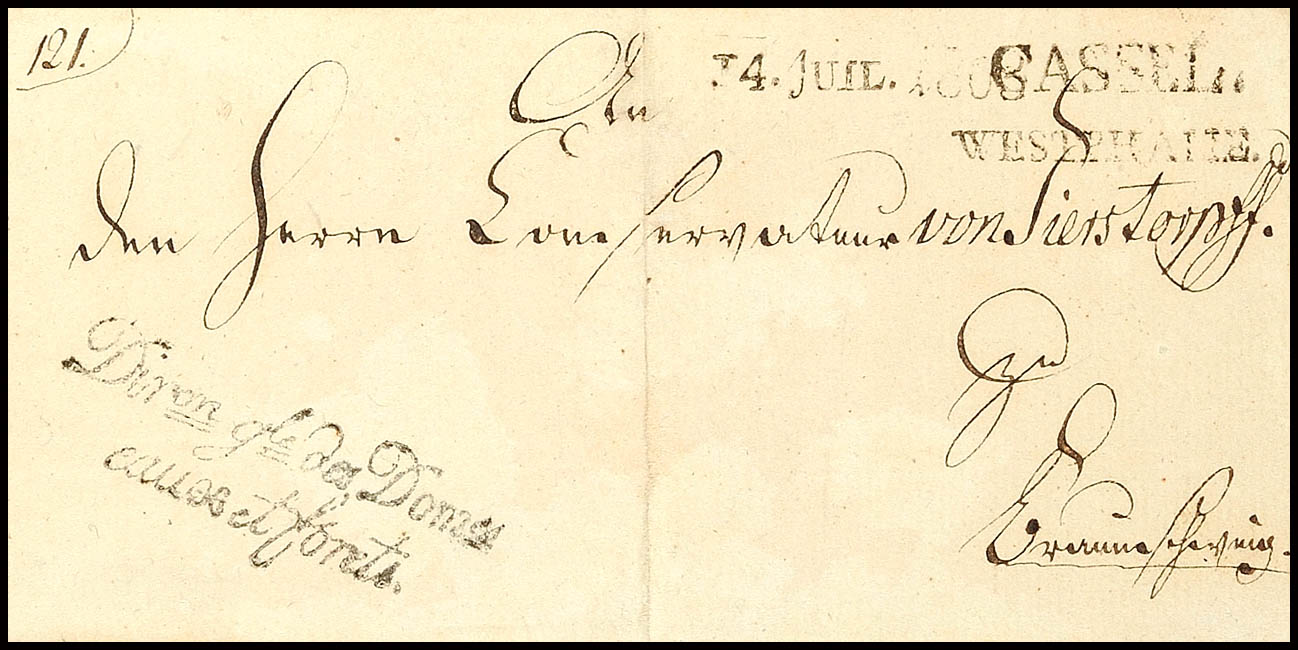 121.
An
14. JUIL. 1808 CASSEL.
WESTPHALIE.
den Herrn Conservateur von Sierstorpff.
zu
Braunschweig.
Diron gle des Domes
eaux et forets.